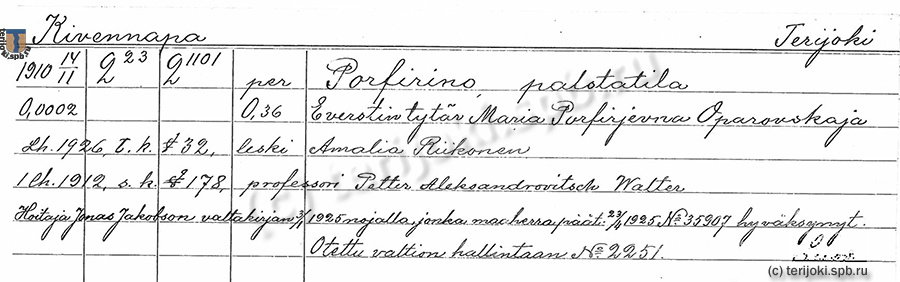 Kivennapa Terijoki
1910 14/11 2 23 2 1101 per Porfirino, palstatila
0,0002 0,36 Everstin tytär Maria Porfirjevna Oparovskaja
Lh. 1926, T. k. § 32, leski Amalia Riikonen
1 Lh. 1912, s. k. § 178, professori Petter Aleksandrovitsch Walter
Hoitaja Jonas Jakobson valtakirjan 3/4 1925 nojalla, jonka maaherra päät: 23/4 1925 № 35907 hyväksynyt.
Otettu valtion hallintaan № 2251.
(c) terijoki.spb.ru
(c) terijoki.spb.ru